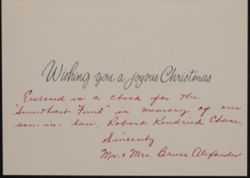 Wishing you a joyous Christmas
Enclosed is a check for the
"Sweetheart Fund" in memory of our
son-in-law, Robert Kendrick Chase.
Sincerely
Mr. & Mrs. Bruce Alexander